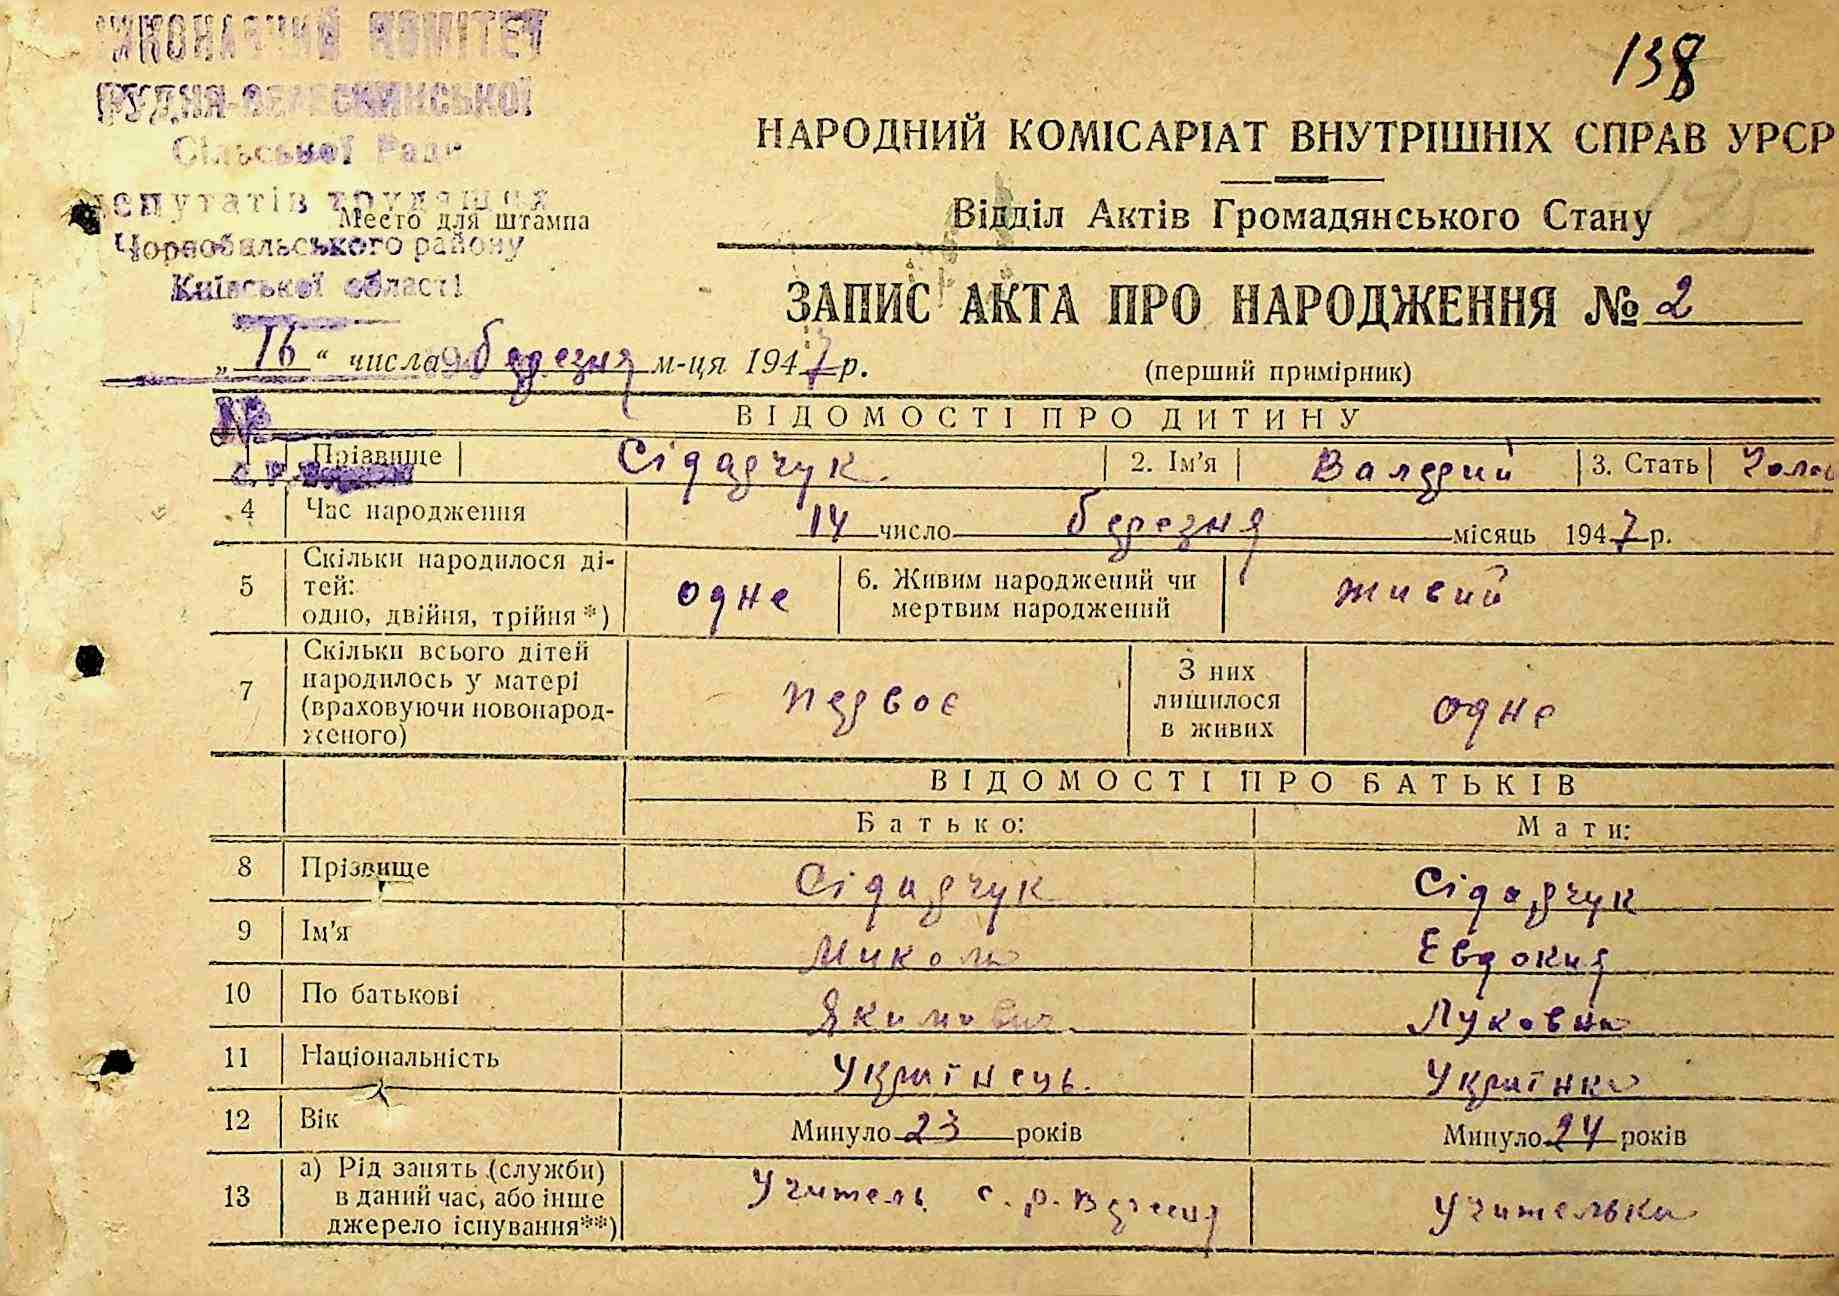 ВИКОНАВЧИЙ КОМІТЕТ
РУДНЯ-ВЕРЕСНИНСЬКОЇ
Сільської Ради
депутатів трудящих
Место для штампа
Чорнобильського району
Київської області
138
НАРОДНИЙ КОМІСАРІАТ ВНУТРІШНІХ СПРАВ УРСР
Відділ Актів Громадянського Стану
ЗАПИС АКТА ПРО НАРОДЖЕННЯ № 2
„16“ числа березня м-ця 1947 р.
(перший примірник)
№
ВІДОМОСТІ ПРО ДИТИНУ
1 Прізвище Сідадчук 2. Ім'я Валерий 3. Стать Чолов
4 Час народження 14 число березня місяць 1947 р.
5 Скільки народилося ді-
тей:
одно, двійня, трійня *) одне
6. Живим народжений чи
мертвим народжений живий
7 Скільки всього дітей
народилось у матері
(враховуючи новонарод-
женого) первоє
З них
лишилося
в живих одне
ВІДОМОСТІ ПРО БАТЬКІВ
Батько: Мати:
8 Прізвище Сідадчук Сідадчук
9 Ім'я Микола Евдокия
10 По батькові Якимович Луковна
11 Національність Українець. Українка
12 Вік Минуло 23 років Минуло 24 років
13 а) Рід занять (служби)
в даний час, або інше
джерело існування**) Учитель с. р. Учителька